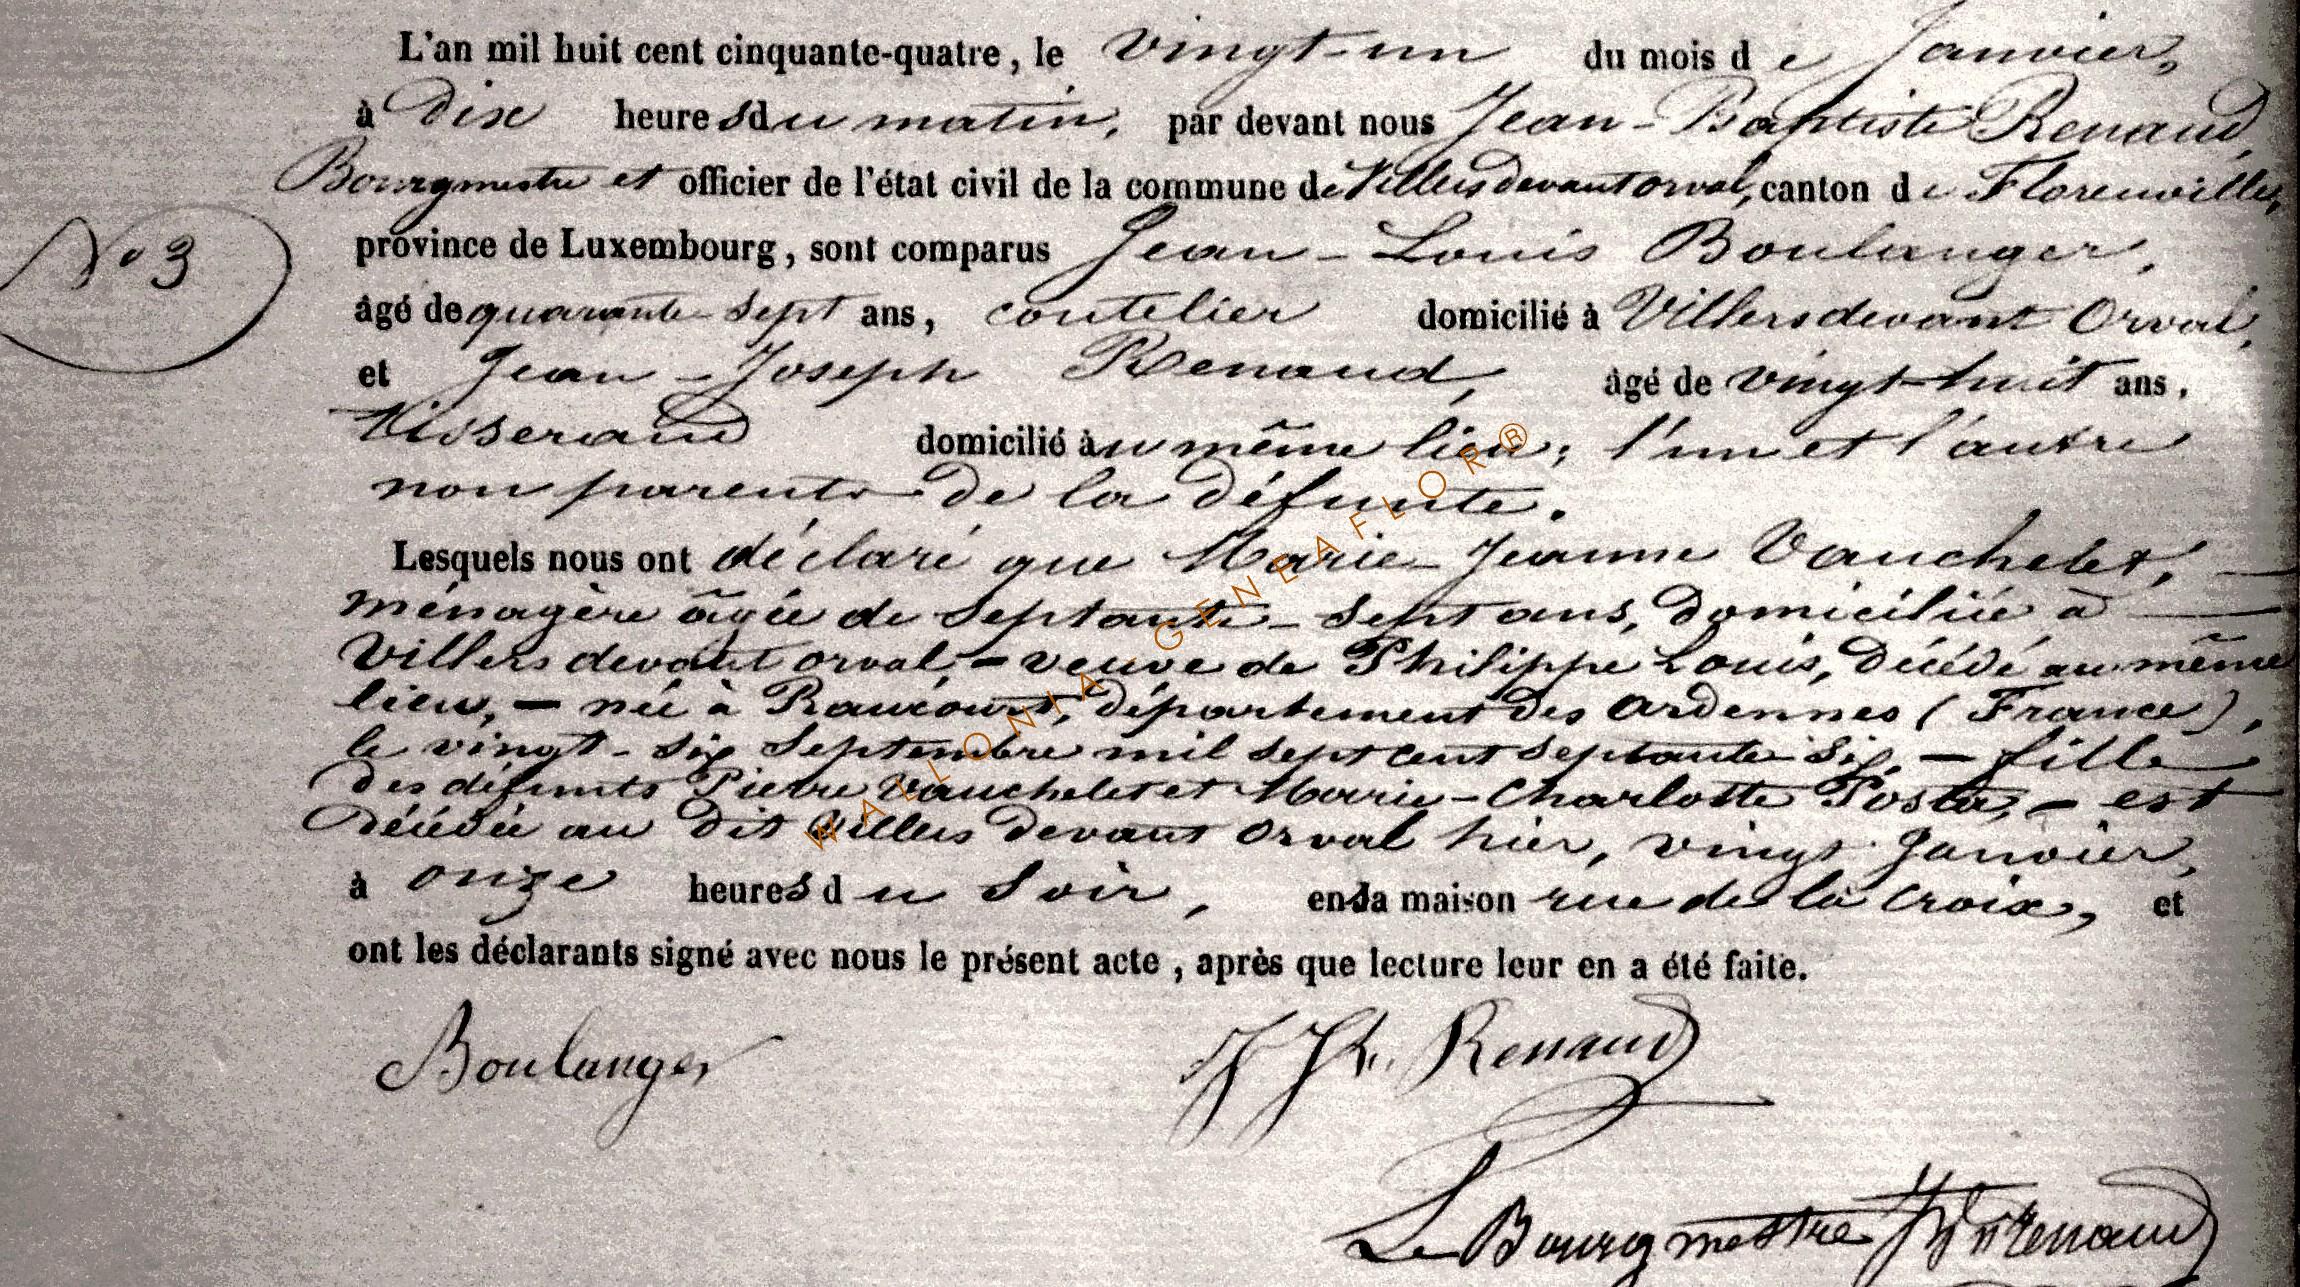 L'an mil huit cent cinquante-quatre, le vingt-un du mois de Janvier,
à dix heures du matin, par devant nous Jean-Baptiste Renaud,
Bourgmestre et officier de l'état civil de la commune de Villers devant orval, canton de Florenville,
N° 3
province de Luxembourg, sont comparus Jean-Louis Boulanger,
âgé de quarante-sept ans, coutelier domicilié à Villers devant Orval,
et Jean-Joseph Renaud, âgé de vingt-huit ans,
tisserand domicilié au même lieu; l'un et l'autre
non parents de la défunte.
Lesquels nous ont déclaré que Marie-Jeanne Vauchelet,
ménagère âgée de septante-sept ans, domiciliée à
Villers devant orval, - veuve de Philippe Louis, décédé au même
lieu, - née à Raucourt, département des ardennes (France),
le vingt-six Septembre mil sept cent septante six, - fille
des défunts Pierre Vauchelet et Marie-Charlotte Posta, - est
décédée au dit Villers devant orval hier, vingt Janvier,
à onze heures du soir, en sa maison rue de la croix, et
ont les déclarants signé avec nous le présent acte, après que lecture leur en a été faite.
Boulanger
Renaud
Le Bourgmestre Renaud
WALLONIA GENEAFLOR®